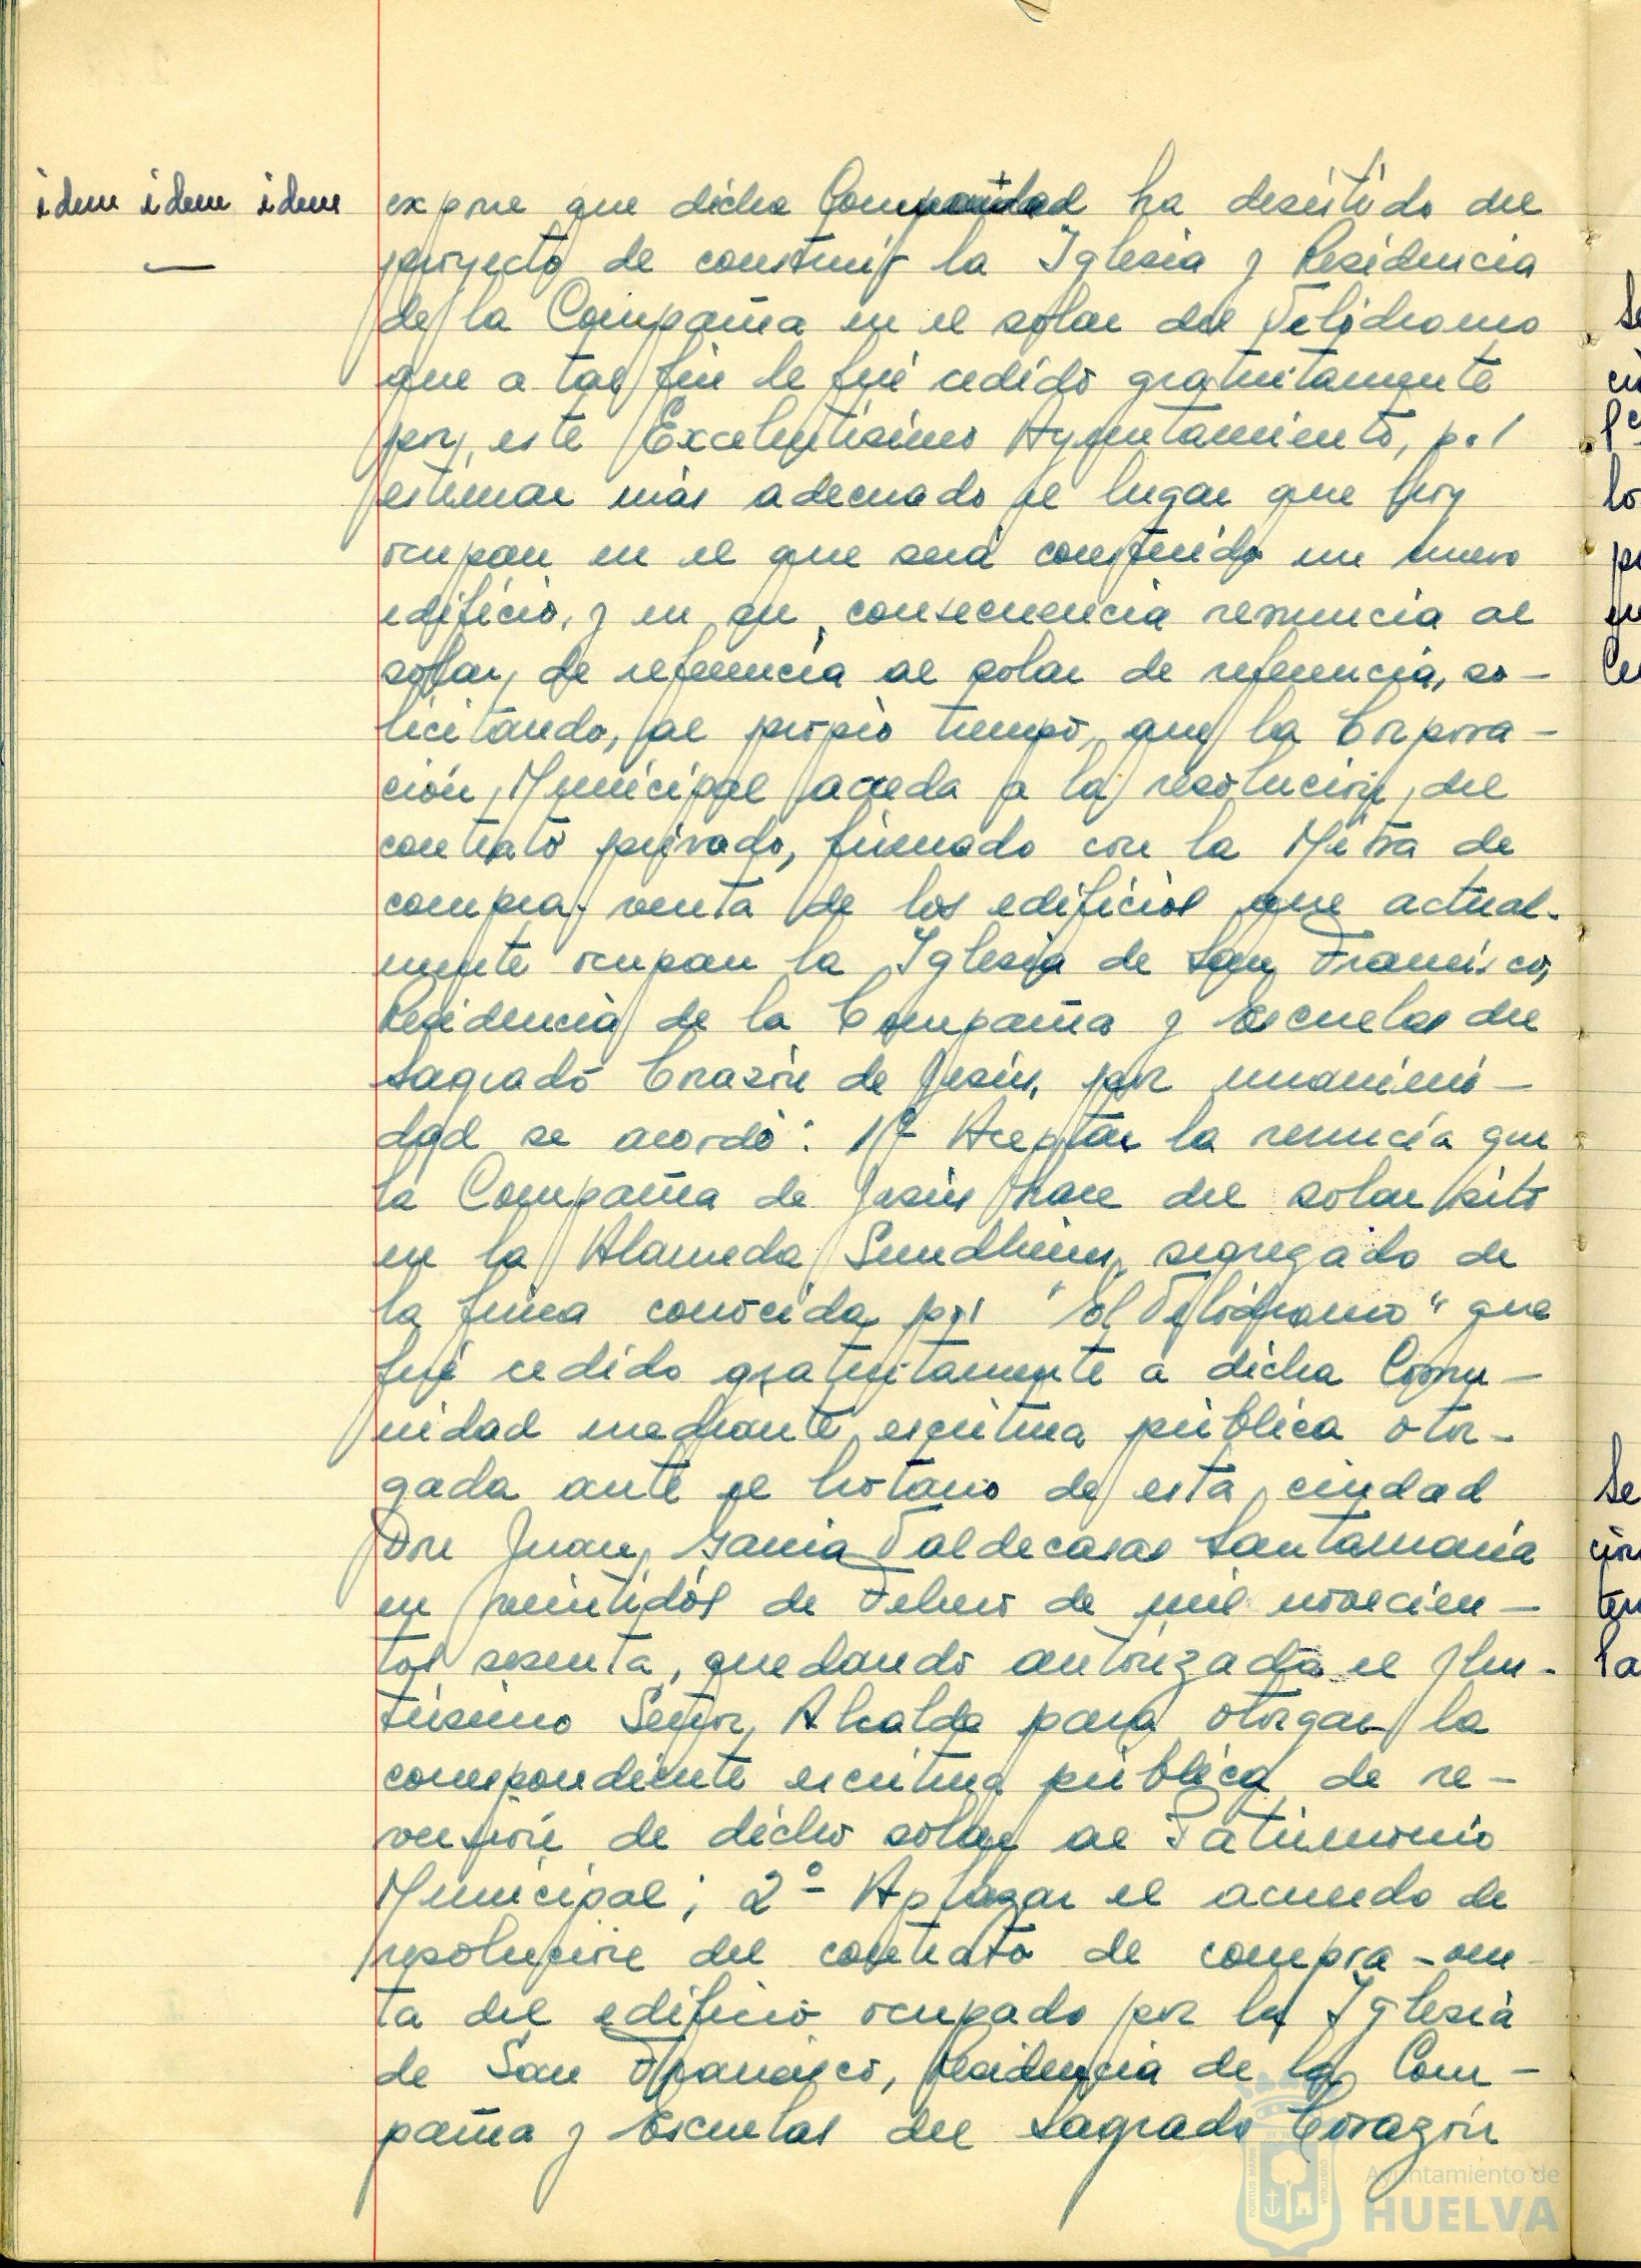 idem idem idem
expone que dicha Comunidad ha desistido del
proyecto de construir la Iglesia y Residencia
de la Compañia en el solar del Velódromo
que a tal fin le fué cedido gratuitamente
por este Excelentísimo Ayuntamiento, por
estimar más adecuado el lugar que hoy
ocupan en el que será construido un nuevo
edificio, y en su consecuencia renuncia al
solar de referencia al solar de referencia, so-
licitando, al propio tiempo, que la Corpora-
ción Municipal acceda a la resolución del
contrato privado, firmado con la Mitra de
compra-venta de los edificios que actual-
mente ocupan la Iglesia de San Francisco,
Residencia de la Compañia y Escuelas del
Sagrado Corazón de Jesús, por unanimi-
dad se acordó: 1º Aceptar la renuncia que
la Compañia de Jesús hace del solar sito
en la Alameda Sundheim, segregado de
la finca conocida por "el Velódromo" que
fué cedido gratuitamente a dicha Comu-
nidad mediante escritura pública otor-
gada ante el Notario de esta ciudad
Don Juan Garcia Valdecasas Santamaria
en veintidós de Febrero de mil novecien-
tos sesenta, quedando autorizado el Ilus-
trísimo Señor Alcalde para otorgar la
correspondiente escritura pública de re-
versión de dicho solar al Patrimonio
Municipal; 2º- Aplazar el acuerdo de
resolución del contrato de compra-ven-
ta del edificio ocupado por la Iglesia
de San Francisco, Residencia de la Com-
pañia y Escuelas del Sagrado Corazón
Ayuntamiento de
HUELVA